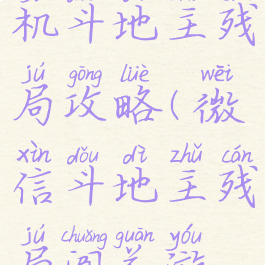 机斗地主残
jú gōng lüè wēi
局攻略(微
xìn dǒu dì zhǔ cán
信斗地主残
jú chuǎng guān yóu
局闯关游